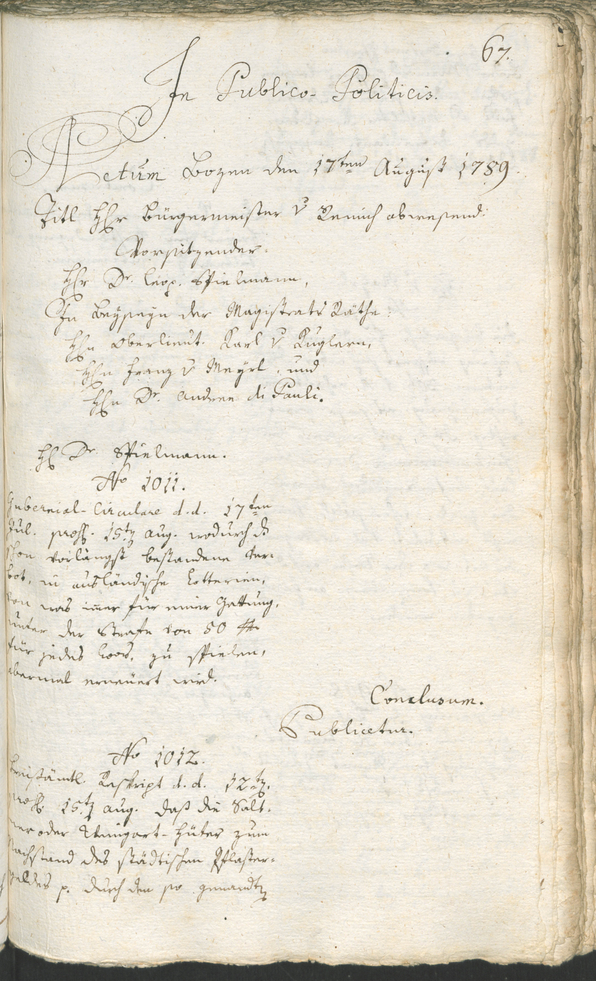 67.
In Publico-Politicis.
Actum Bozen den 17ten August 1789.
Titl HHr Bürgermeister v Remich abwesend:
Vorsitzender.
HHr Dr. Leop. Spielmann,
In Beyseyn der Magistrats Räthe:
HHn Oberlieut. Karl v Kuglern,
HHn Franz v Mayrl, und
HHn Dr. Andree di Pauli.
HH Dr Spielmann.
No 1011.
Gubernial-Circulare d.d. 17ten
Jul. 15ten Aug. wodurch das
schon vorlängst bestandene Ver-
bot, in ausländische Lotterien,
von was immer für einer Gattung,
unter der Strafe von 50
für jedes Loos, zu spielen,
abermal erneuert wird.
Conclusum.
Publicetur.
No 1012.
Kreisämtl. Reskript d.d. 12ten
15ten Aug. daß die Salt-
ner oder Weingart-Hüter zum
Nachstand des städtischen Pflaster-
geldes p. durch den so genandten